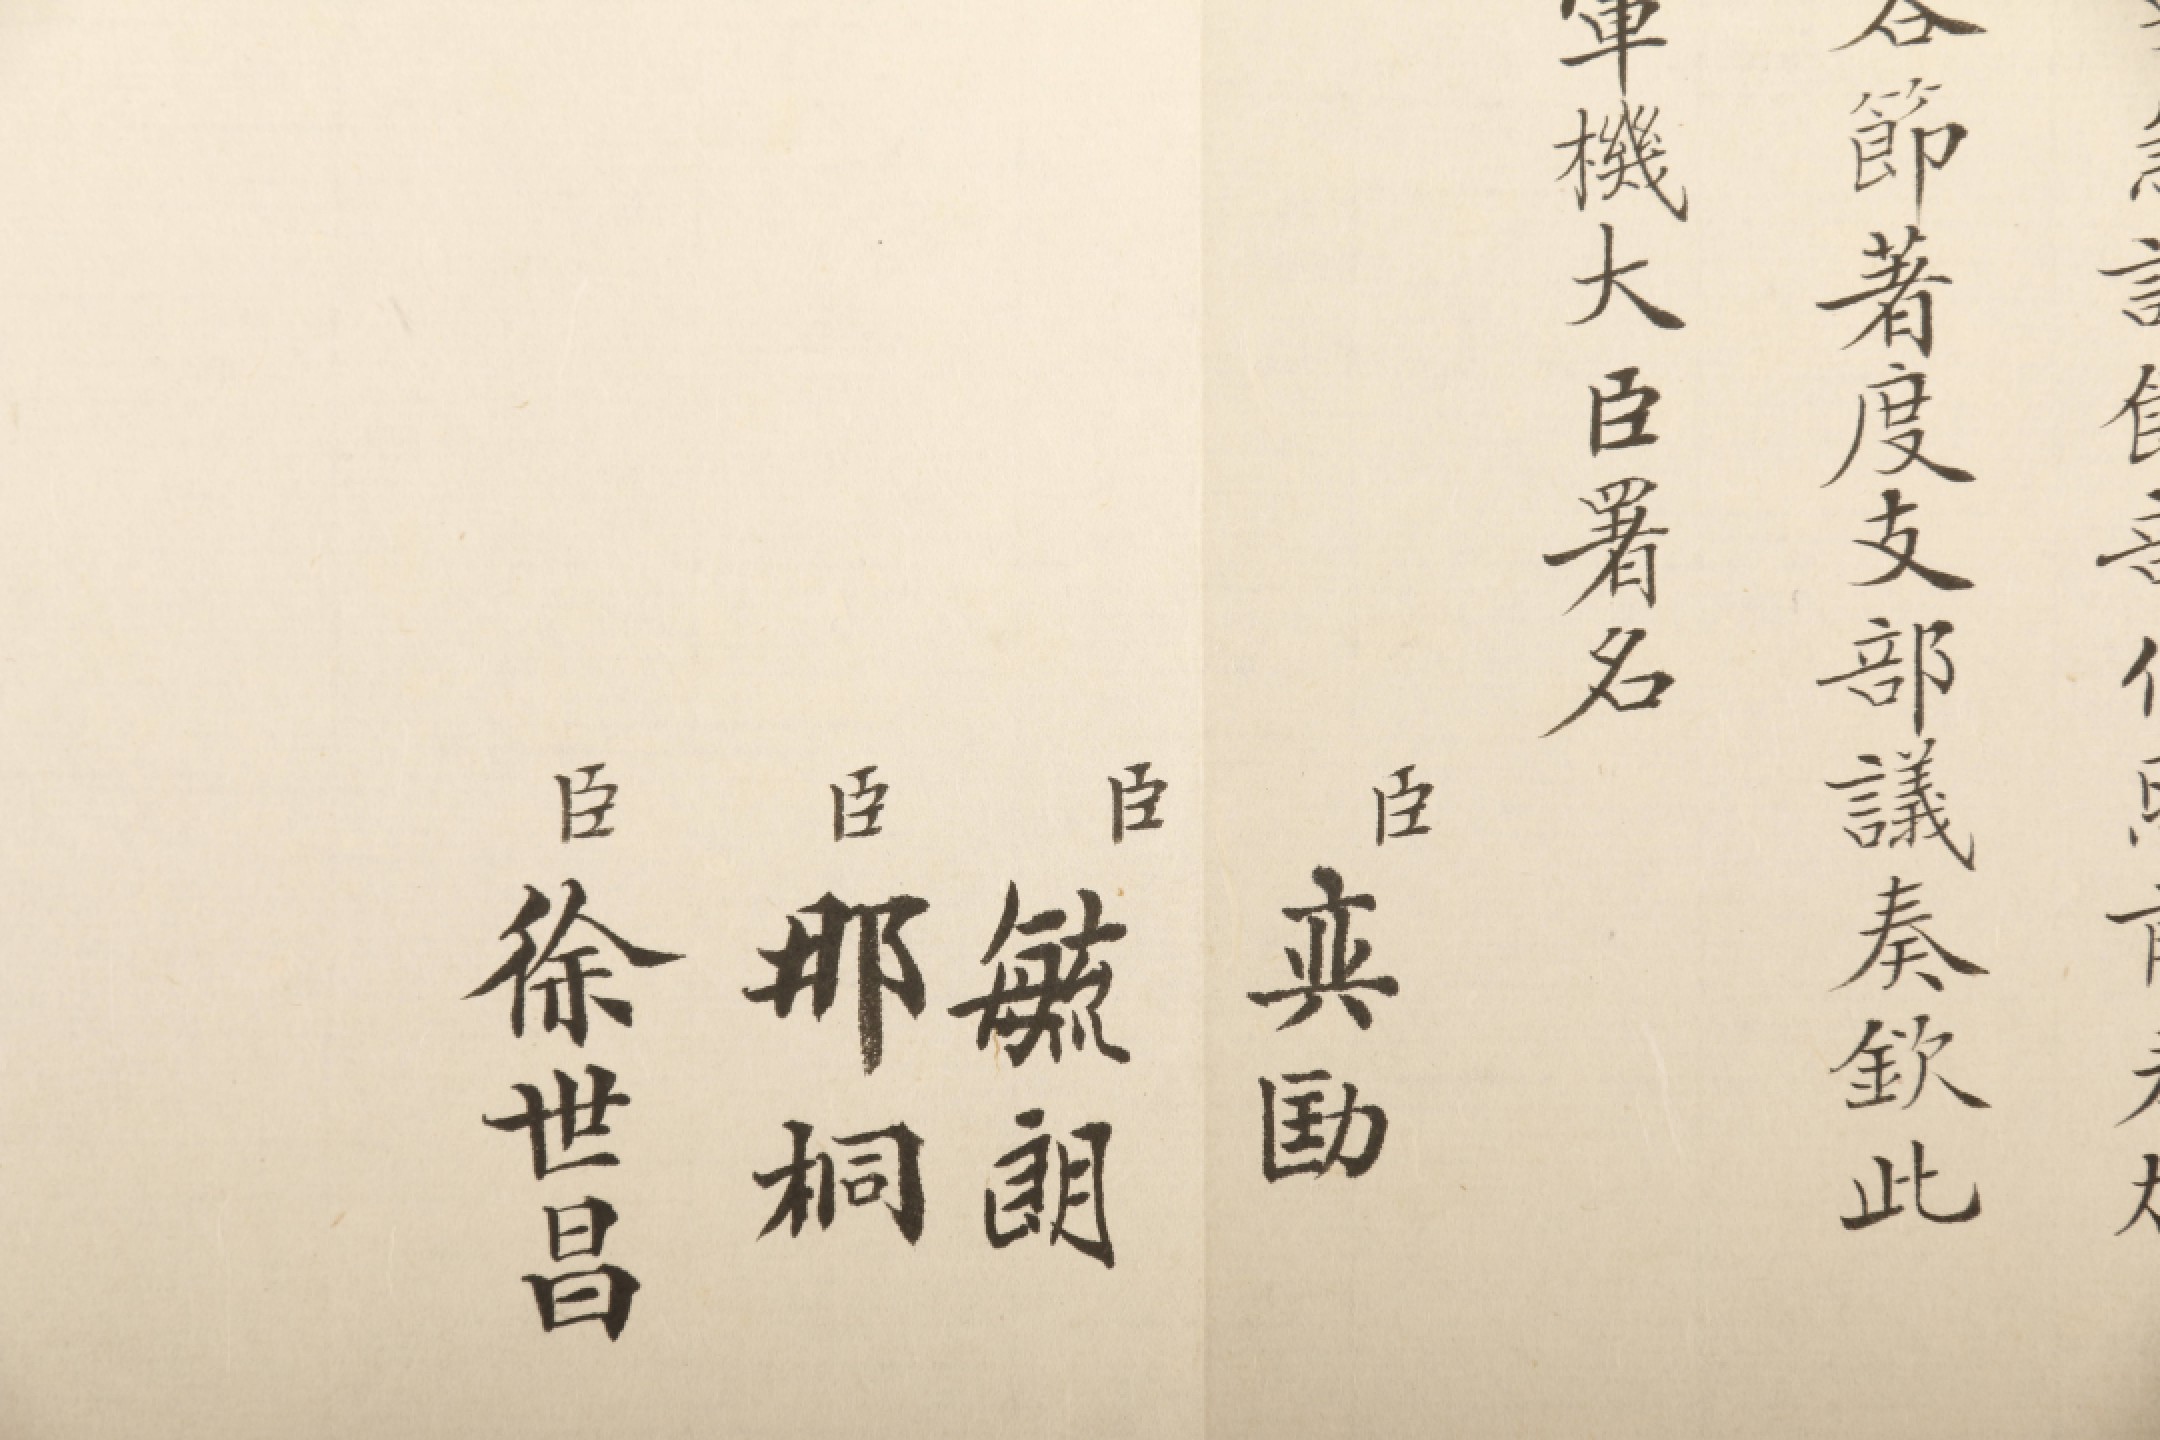 各節著度支部議奏欽此
軍機大臣署名
臣奕劻
臣毓朗
臣那桐
臣徐世昌